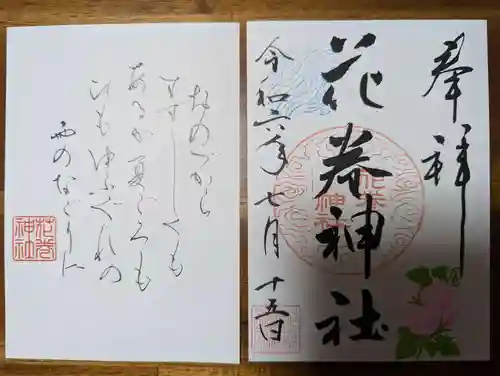 奉拝
花巻神社
令和六年七月十五日
おのづから
すずしくも
あるか夏ごろも
ひもゆふぐれの
雨のなごりに
花巻
神社